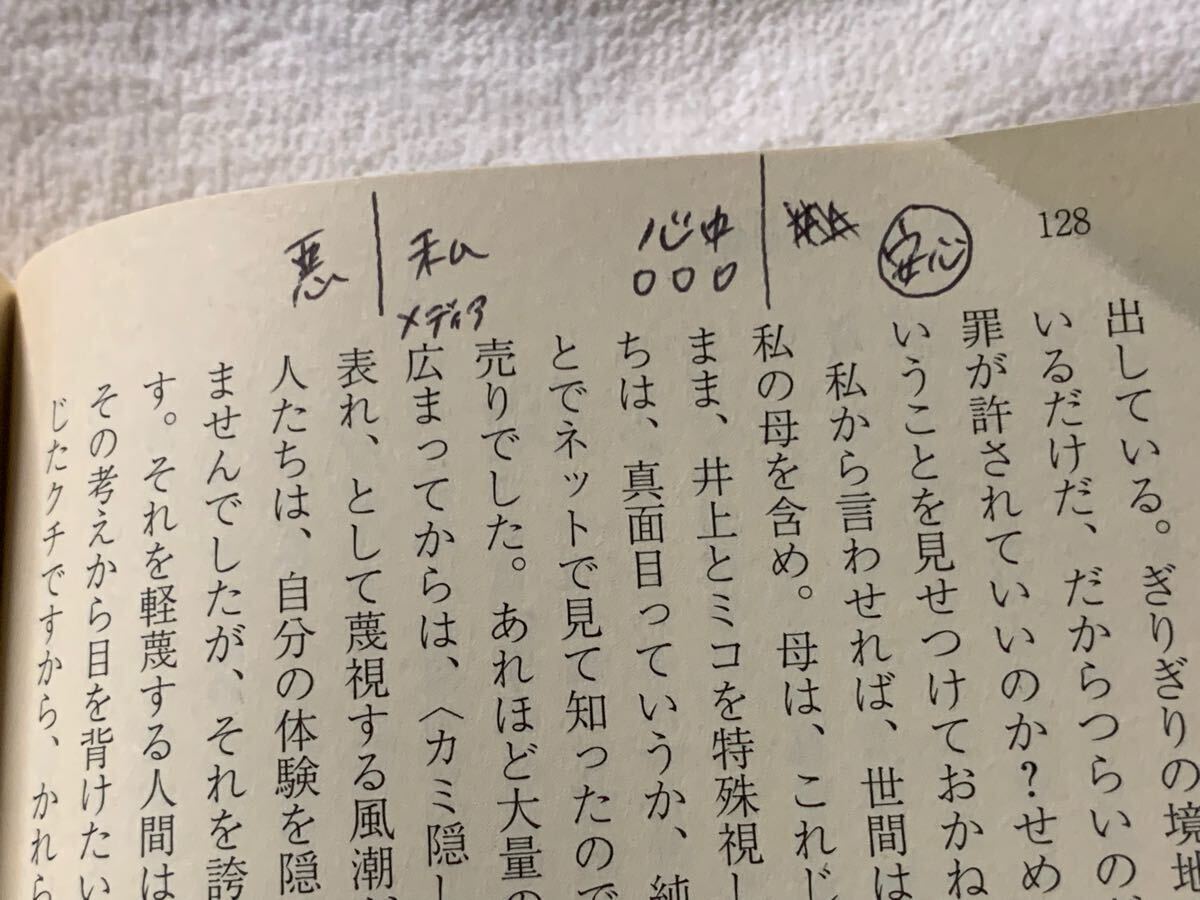 128
安心
心中
○○○
私
メディア
悪
出している。ぎりぎりの境地
いるだけだ、だからつらいのだ
罪が許されていいのか？せめ
いうことを見せつけておかね
私から言わせれば、世間は
私の母を含め。母は、これじ
まま、井上とミコを特殊視し
ちは、真面目っていうか、純
とでネットで見て知ったので
売りでした。あれほど大量の
広まってからは、〈カミ隠し
表れ、として蔑視する風潮が
人たちは、自分の体験を隠
ませんでしたが、それを誇
す。それを軽蔑する人間は
その考えから目を背けたい
じたクチですから、かれら